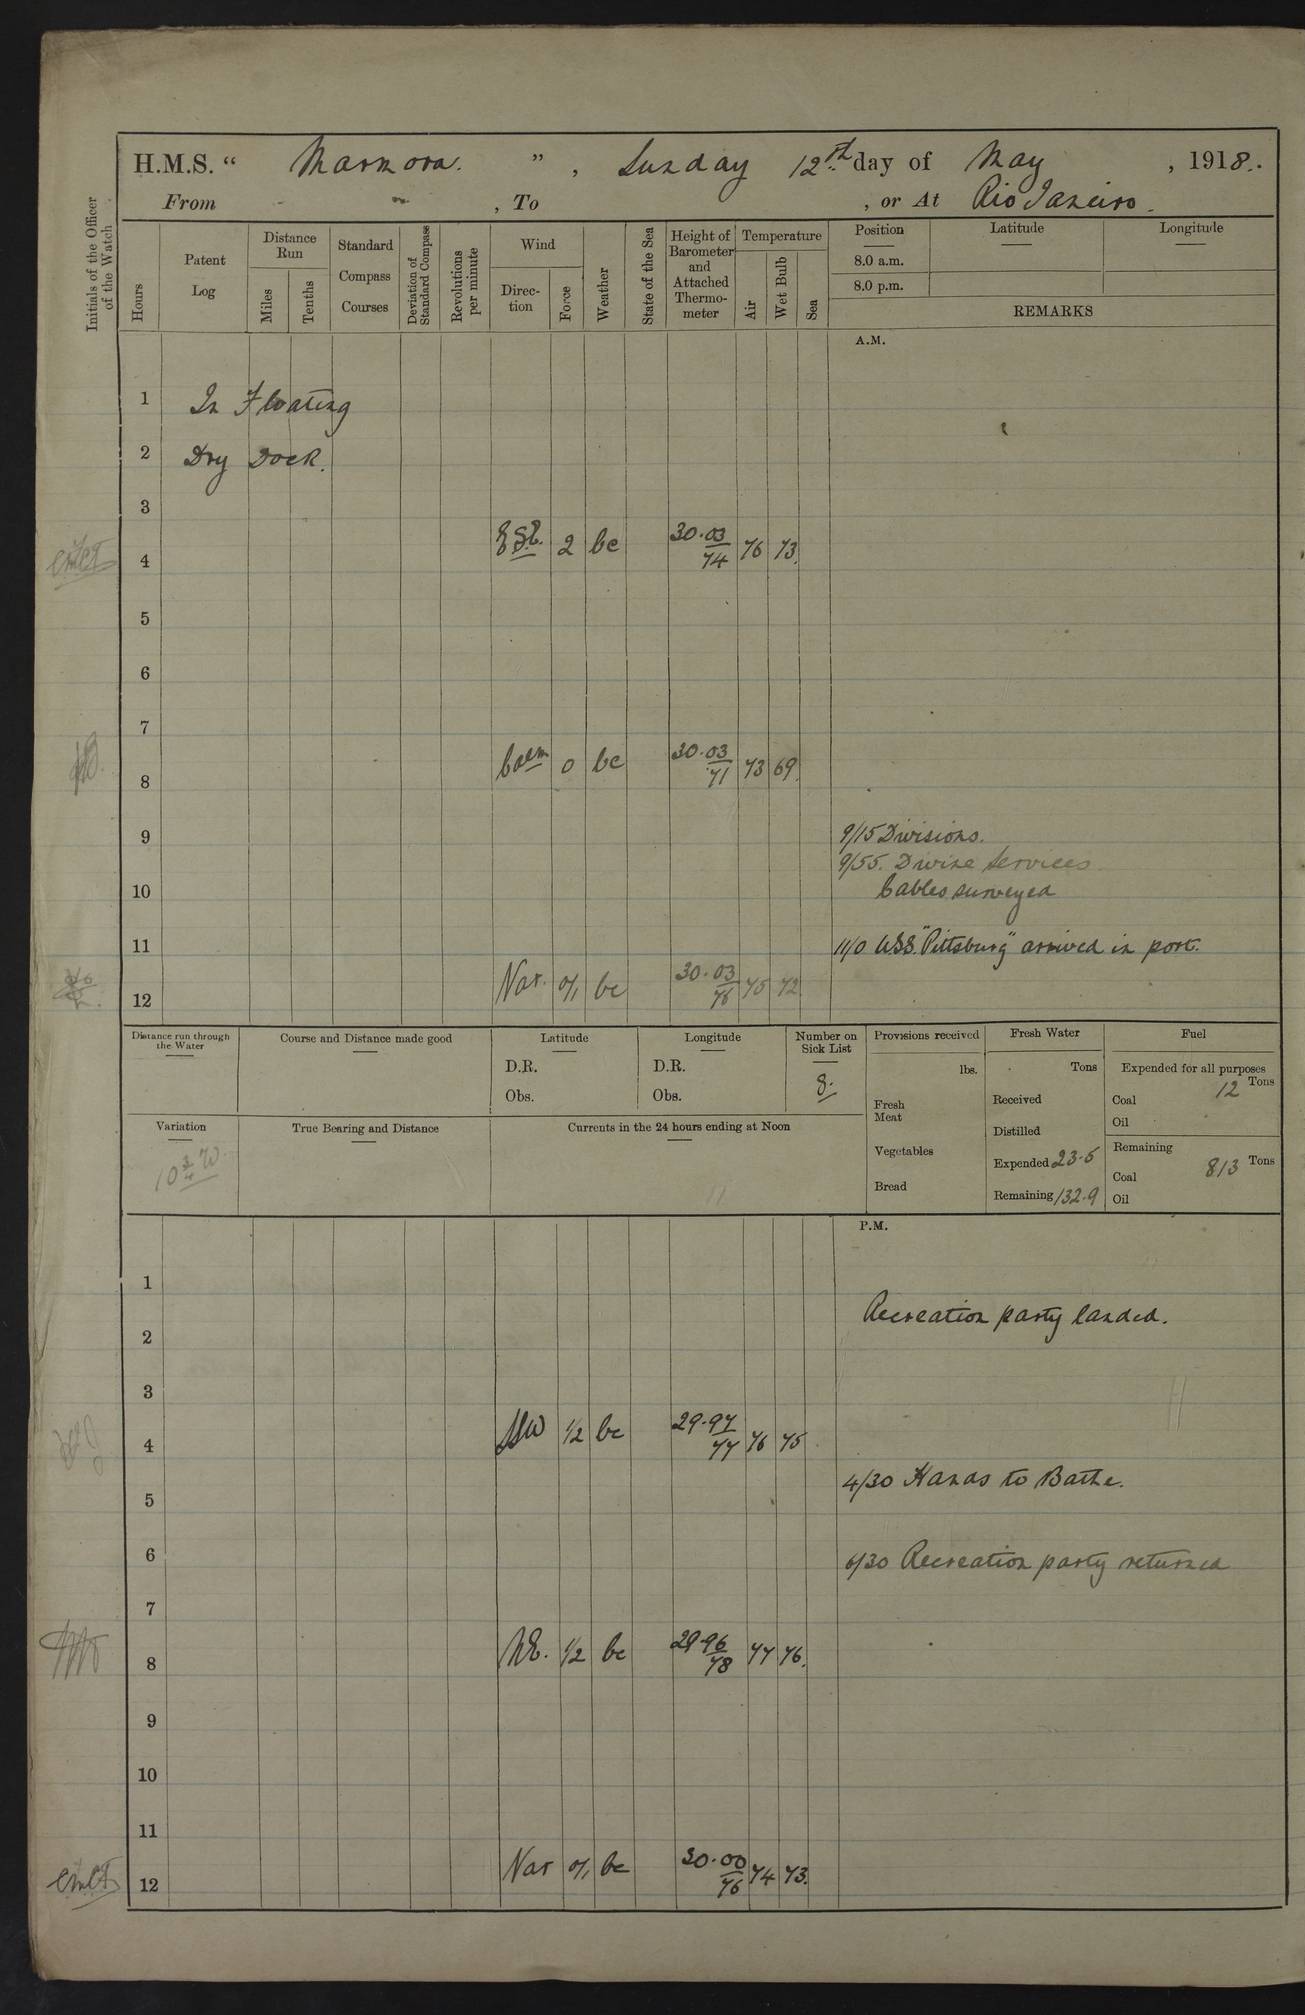 H.M.S. " Marmora. ", Sunday 12th day of May, 1918.
From - - , To , or At Rio Janeiro.
Initials of the Officer of the Watch
Hours
Patent Log
Distance Run
Miles
Tenths
Standard Compass Courses
Deviation of Standard Compass
Revolutions per minute
Wind
Direction
Force
Weather
State of the Sea
Height of Barometer and Attached Thermometer
Temperature
Air
Wet Bulb
Sea
Position
8.0 a.m.
8.0 p.m.
Latitude
Longitude
REMARKS
A.M.
1 In Floating
2 Dry Dock.
3
4 2 bc 30.03/74 76 73.
5
6
7
8 Calm 0 bc 30.03/71 73 69.
9 9/15 Divisions.
9/55. Divine Services.
10 Cables surveyed
11 11/0 USS. "Pittsburg" arrived in port.
12 Var. 0/1 bc 30.03/76 75 72.
Distance run through the Water
Course and Distance made good
Latitude
D.R.
Obs.
Longitude
D.R.
Obs.
Number on Sick List
8.
Provisions received
lbs.
Fresh Meat
Vegetables
Bread
Fresh Water
Tons
Received
Distilled
Expended 23.5
Remaining 132.9
Fuel
Expended for all purposes
Coal 12 Tons
Oil
Remaining
Coal 813 Tons
Oil
Variation
10 3/4 W.
True Bearing and Distance
Currents in the 24 hours ending at Noon
P.M.
1
Recreation party landed.
2
3
4 SSW 1/2 bc 29.97/77 76 75
4/30 Hands to Bathe.
5
6 6/30 Recreation party returned
7
8 NE. 1/2 bc 29.96/78 77 76.
9
10
11
12 Var 0/1 bc 30.00/76 74 73.